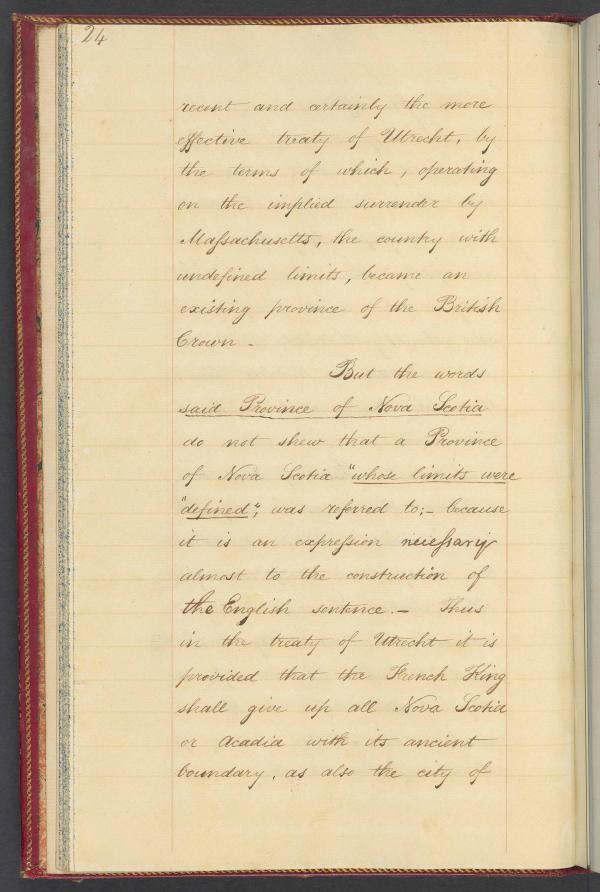 24
recent and certainly the more
effective treaty of Utrecht, by
the terms of which, operating
on the implied surrender by
Maſsachusetts, the country with
undefined limits, became an
existing province of the British
Crown -
But the words
said Province of Nova Scotia
do not shew that a Province
of Nova Scotia "whose limits were
"defined", was referred to; - because
it is an expreſsion neceſsary
almost to the construction of
the English sentence. - Thus
in the treaty of Utrecht it is
provided that the French King
shall give up all Nova Scotia
or Acadia with its ancient
boundary, as also the city of